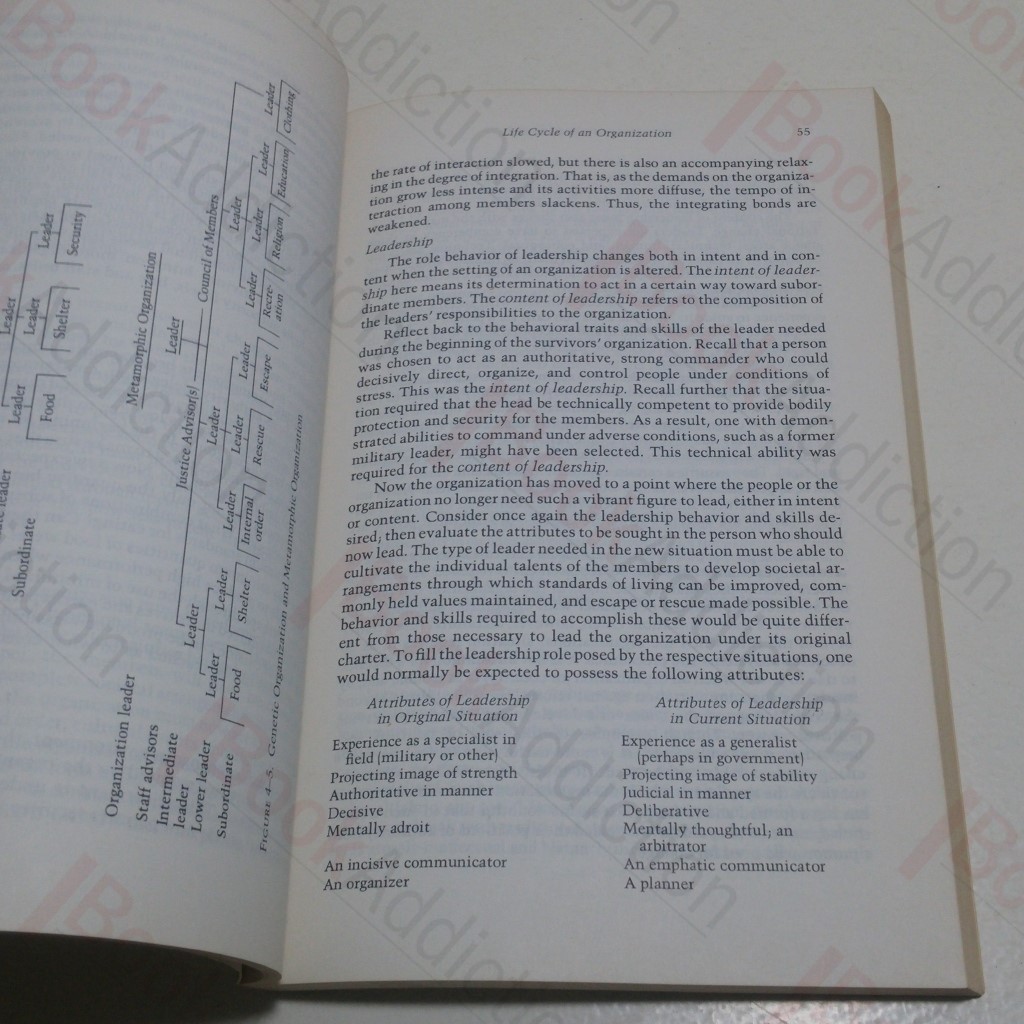 Leader
Leader
Leader
Leader
Food
Shelter
Security
Subordinate
Metamorphic Organization
Leader
Justice Advisor[s]
Council of Members
Leader
Leader
Leader
Leader
Leader
Leader
Leader
Leader
Leader
Leader
Leader
Leader
Leader
Food
Shelter
Internal
order
Rescue
Escape
Recre-
ation
Religion
Education
Clothing
Organization leader
Staff advisors
Intermediate
leader
Lower leader
Subordinate
FIGURE 4–5. Genetic Organization and Metamorphic Organization
Life Cycle of an Organization 55
the rate of interaction slowed, but there is also an accompanying relax-
ing in the degree of integration. That is, as the demands on the organiza-
tion grow less intense and its activities more diffuse, the tempo of in-
teraction among members slackens. Thus, the integrating bonds are
weakened.
Leadership
The role behavior of leadership changes both in intent and in con-
tent when the setting of an organization is altered. The intent of leader-
ship here means its determination to act in a certain way toward subor-
dinate members. The content of leadership refers to the composition of
the leaders' responsibilities to the organization.
Reflect back to the behavioral traits and skills of the leader needed
during the beginning of the survivors' organization. Recall that a person
was chosen to act as an authoritative, strong commander who could
decisively direct, organize, and control people under conditions of
stress. This was the intent of leadership. Recall further that the situa-
tion required that the head be technically competent to provide bodily
protection and security for the members. As a result, one with demon-
strated abilities to command under adverse conditions, such as a former
military leader, might have been selected. This technical ability was
required for the content of leadership.
Now the organization has moved to a point where the people or the
organization no longer need such a vibrant figure to lead, either in intent
or content. Consider once again the leadership behavior and skills de-
sired; then evaluate the attributes to be sought in the person who should
now lead. The type of leader needed in the new situation must be able to
cultivate the individual talents of the members to develop societal ar-
rangements through which standards of living can be improved, com-
monly held values maintained, and escape or rescue made possible. The
behavior and skills required to accomplish these would be quite differ-
ent from those necessary to lead the organization under its original
charter. To fill the leadership role posed by the respective situations, one
would normally be expected to possess the following attributes:
Attributes of Leadership
in Original Situation
Experience as a specialist in
field (military or other)
Projecting image of strength
Authoritative in manner
Decisive
Mentally adroit
An incisive communicator
An organizer
Attributes of Leadership
in Current Situation
Experience as a generalist
(perhaps in government)
Projecting image of stability
Judicial in manner
Deliberative
Mentally thoughtful; an
arbitrator
An emphatic communicator
A planner
BookAddiction